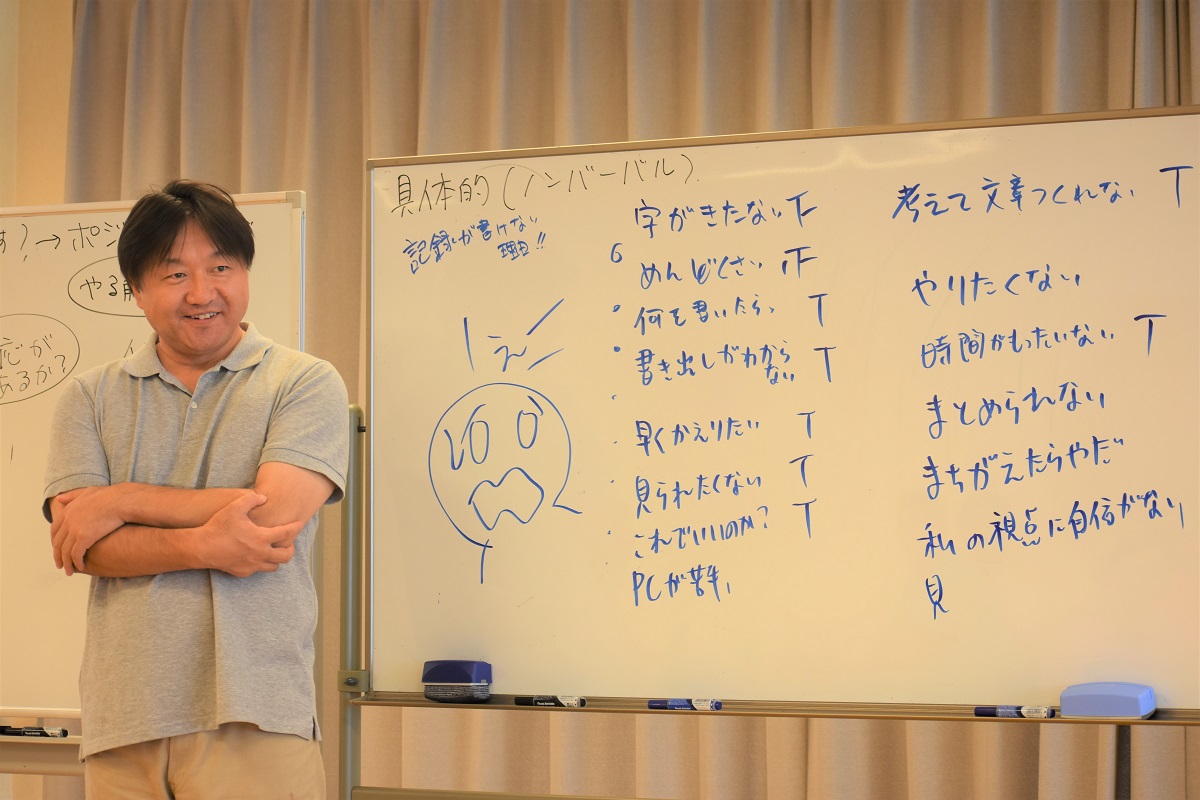 す?→ポジ
やる
応が
あるか?
具体的(ノンバーバル)
記録が書けない
理由!!
えー
字がきたない F
めんどくさい F
何を書いたらっ T
書き出しがわから
ない T
早くかえりたい T
見られたくない T
これでいいのか? T
PCが苦手
考えて文章つくれない T
やりたくない
時間がもったいない T
まとめられない
まちがえたらやだ
私の視点に自信がない
見